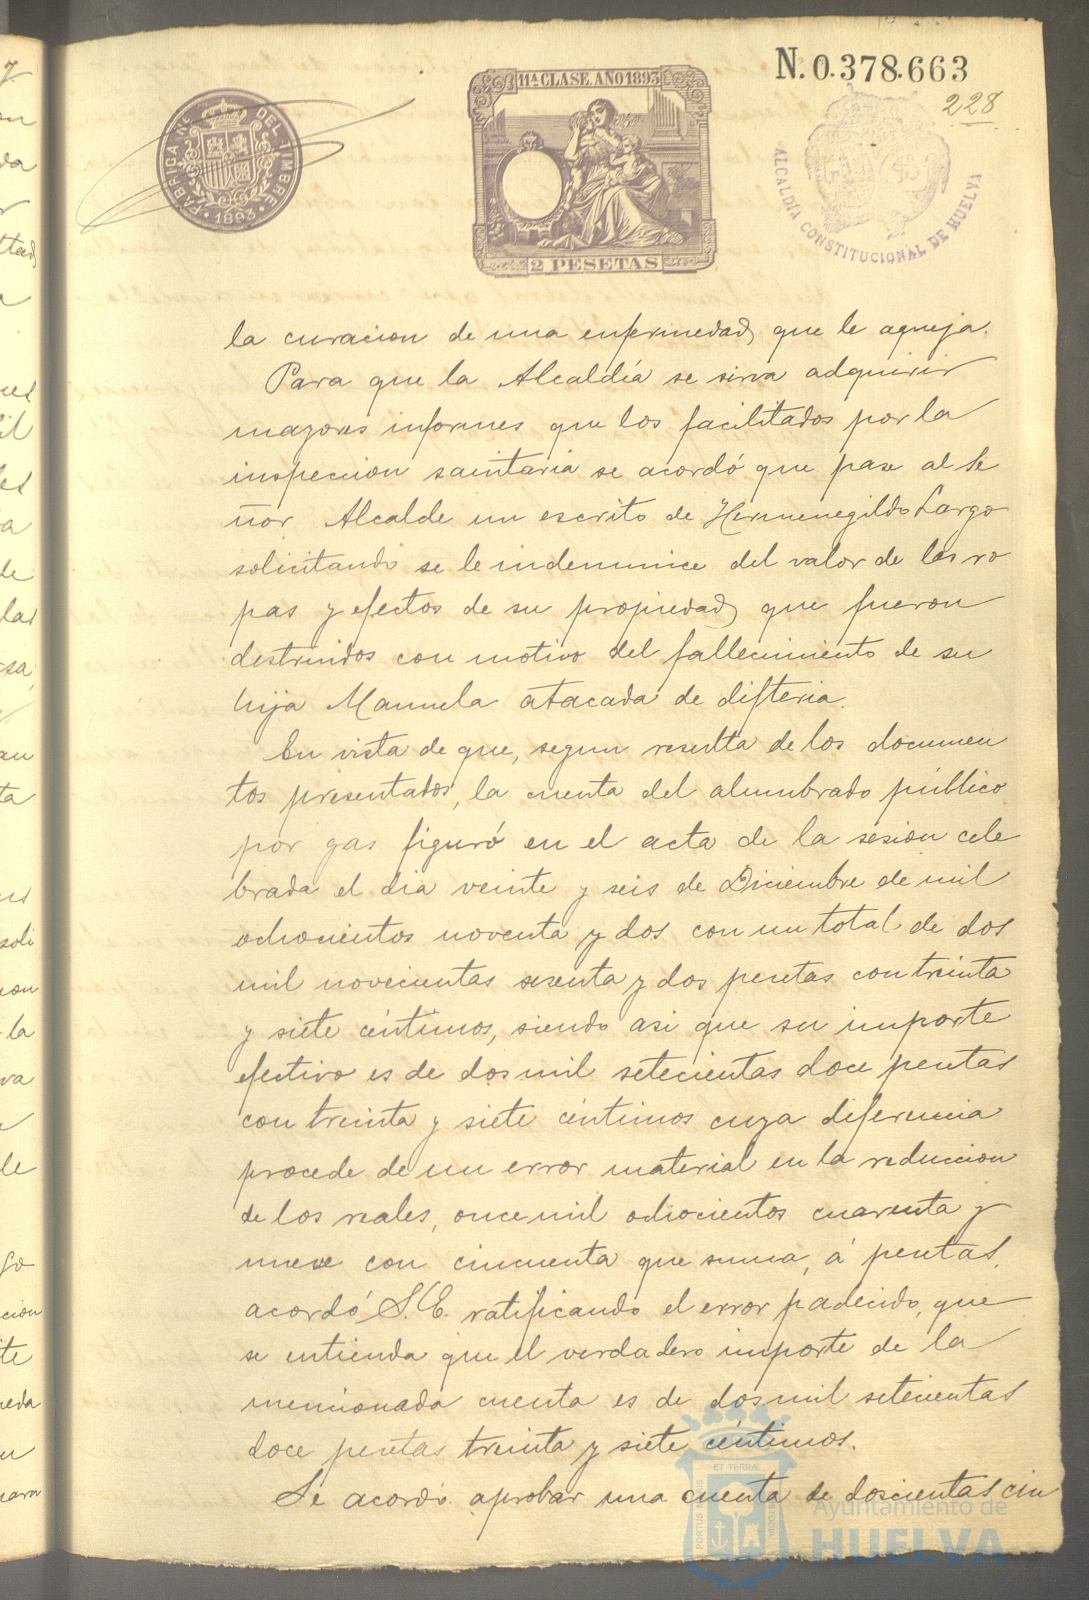 N. 0.378.663
228
11ª CLASE. AÑO 1893
FABRICA NL. DEL TIMBRE
1893
2 PESETAS
ALCALDÍA CONSTITUCIONAL DE HUELVA
la curacion de una enfermedad, que le aqueja.
Para que la Alcaldía se sirva adquirir
mayores informes que los facilitados por la
inspeccion sanitaria se acordó que pase al Se
ñor Alcalde un escrito de Hermenegildo Largo
solicitando se le indemnice del valor de las ro
pas y efectos de su propiedad, que fueron
destruidos con motivo del fallecimiento de su
hija Manuela atacada de difteria.
En vista de que, segun resulta de los documen
tos presentados, la cuenta del alumbrado público
por gas figuró en el acta de la sesion cele
brada el dia veinte y seis de Diciembre de mil
ochocientos noventa y dos con un total de dos
mil novecientas sesenta y dos pesetas con treinta
y siete céntimos, siendo asi que su importe
efectivo es de dos mil setecientas doce pesetas
con treinta y siete céntimos cuya diferencia
procede de un error material en la reduccion
de los reales, once mil ochocientos cuarenta y
nueve con cincuenta que suma, á pesetas,
acordó S.E. ratificando el error padecido, que
se entienda que el verdadero importe de la
mencionada cuenta es de dos mil setecientas
doce pesetas treinta y siete céntimos.
Se acordó aprobar una cuenta de doscientas cin
Ayuntamiento de
HUELVA